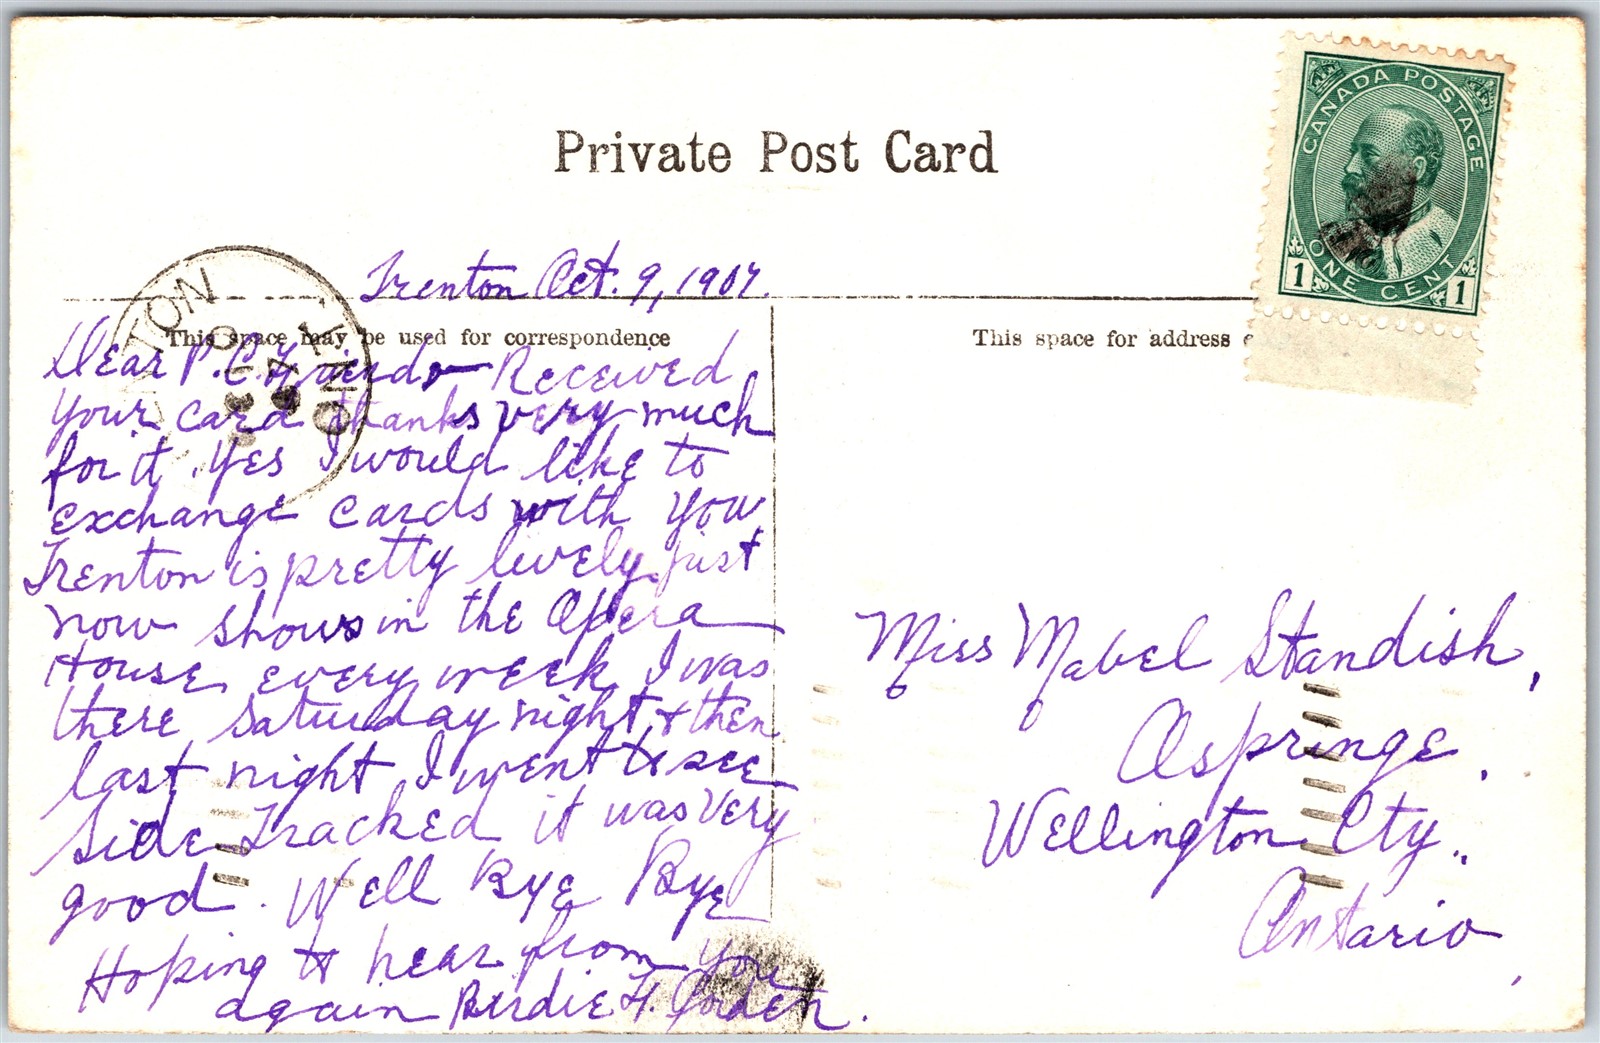 Private Post Card
CANADA POSTAGE
ONE CENT
1 1
Trenton Oct. 9, 1907.
This space may be used for correspondence
This space for address
Dear P.C. Friend Received
your card thanks very much
for it. Yes I would like to
exchange cards with you
Trenton is pretty lively just
now shows in the Opera
House every week I was
there Saturday night & then
last night I went to see
Side Tracked it was very
good. Well Bye Bye
Hoping to hear from you
again Birdie H.
Miss Mabel Standish,
Ospringe.
Wellington Cty..
Ontario,
TRENTON
ONT